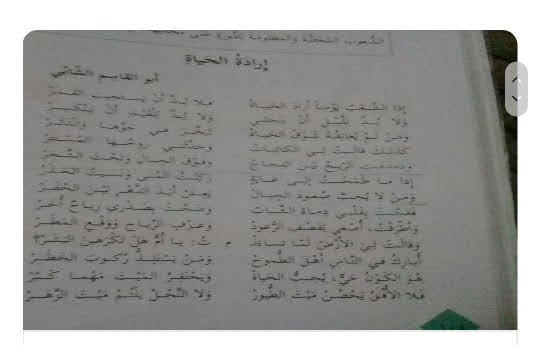 الشعوب المضطهدة والمظلومة بالثورة على
إرادةُ الحَياةِ
أبو القاسم الشابّي
إذا الشَّعْبُ يَوْماً أرادَ الحَياةَ فَلا بُدَّ أنْ يَسْتَجيبَ القَدَرْ
وَلا بُدَّ لِلَّيْلِ أنْ يَنْجَلي وَلا بُدَّ لِلْقَيْدِ أنْ يَنْكَسِرْ
وَمَنْ لَمْ يُعانِقْهُ شَوْقُ الحَياةِ تَبَخَّرَ في جَوِّها وَانْدَثَرْ
كَذلِكَ قالَتْ لِيَ الكائِناتُ وَحَدَّثَني روحُها المُسْتَتِرْ
وَدَمْدَمَتِ الرّيحُ بَيْنَ الفِجاجِ وَفَوْقَ الجِبالِ وَتَحْتَ الشَّجَرْ
إذا ما طَمَحْتُ إلى غايَةٍ رَكِبْتُ المُنى وَنَسيتُ الحَذَرْ
وَمَنْ لا يُحِبُّ صُعودَ الجِبالِ يَعِشْ أبَدَ الدَّهْرِ بَيْنَ الحُفَرْ
فَعَجَّتْ بِقَلْبي دِماءُ الشَّبابِ وَضَجَّتْ بِصَدْري رِياحٌ أُخَرْ
وَأَطْرَقْتُ، أُصْغي لِقَصْفِ الرُّعودِ وَعَزْفِ الرِّياحِ وَوَقْعِ المَطَرْ
وَقالَتْ لِيَ الأَرْضُ لَمّا تَساءَلْتُ: يا أُمُّ هَلْ تَكْرَهينَ البَشَرْ؟
أُبارِكُ في النّاسِ أَهْلَ الطُّموحِ وَمَنْ يَسْتَلِذُّ رُكوبَ الخَطَرْ
هُوَ الكَوْنُ حَيٌّ، يُحِبُّ الحَياةَ وَيَحْتَقِرُ المَيْتَ مَهْما كَبُرْ
فَلا الأُفْقُ يَحْضُنُ مَيْتَ الطُّيورِ وَلا النَّحْلُ يَلْثُمُ مَيْتَ الزَّهَرْ